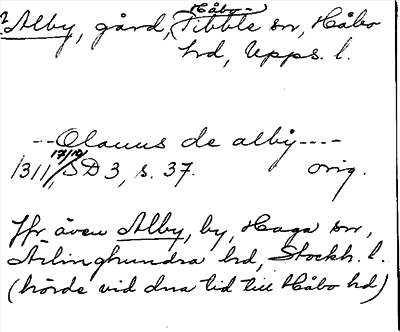 2 Alby, gård, Håbo-Tibble sn, Håbo
hd, Upps. l.
--Olauus de alby----
1311 17/10, SD 3, s. 37. orig.
Jfr även Alby, by, Haga sn,
Ärlinghundra hd, Stockh. l.
(hörde vid dna tid till Håbo hd)